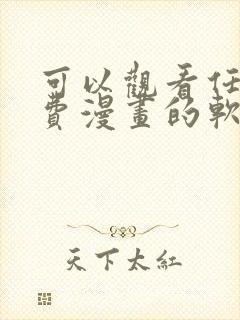 可以觀看任
費漫畫的軟
天下太紅